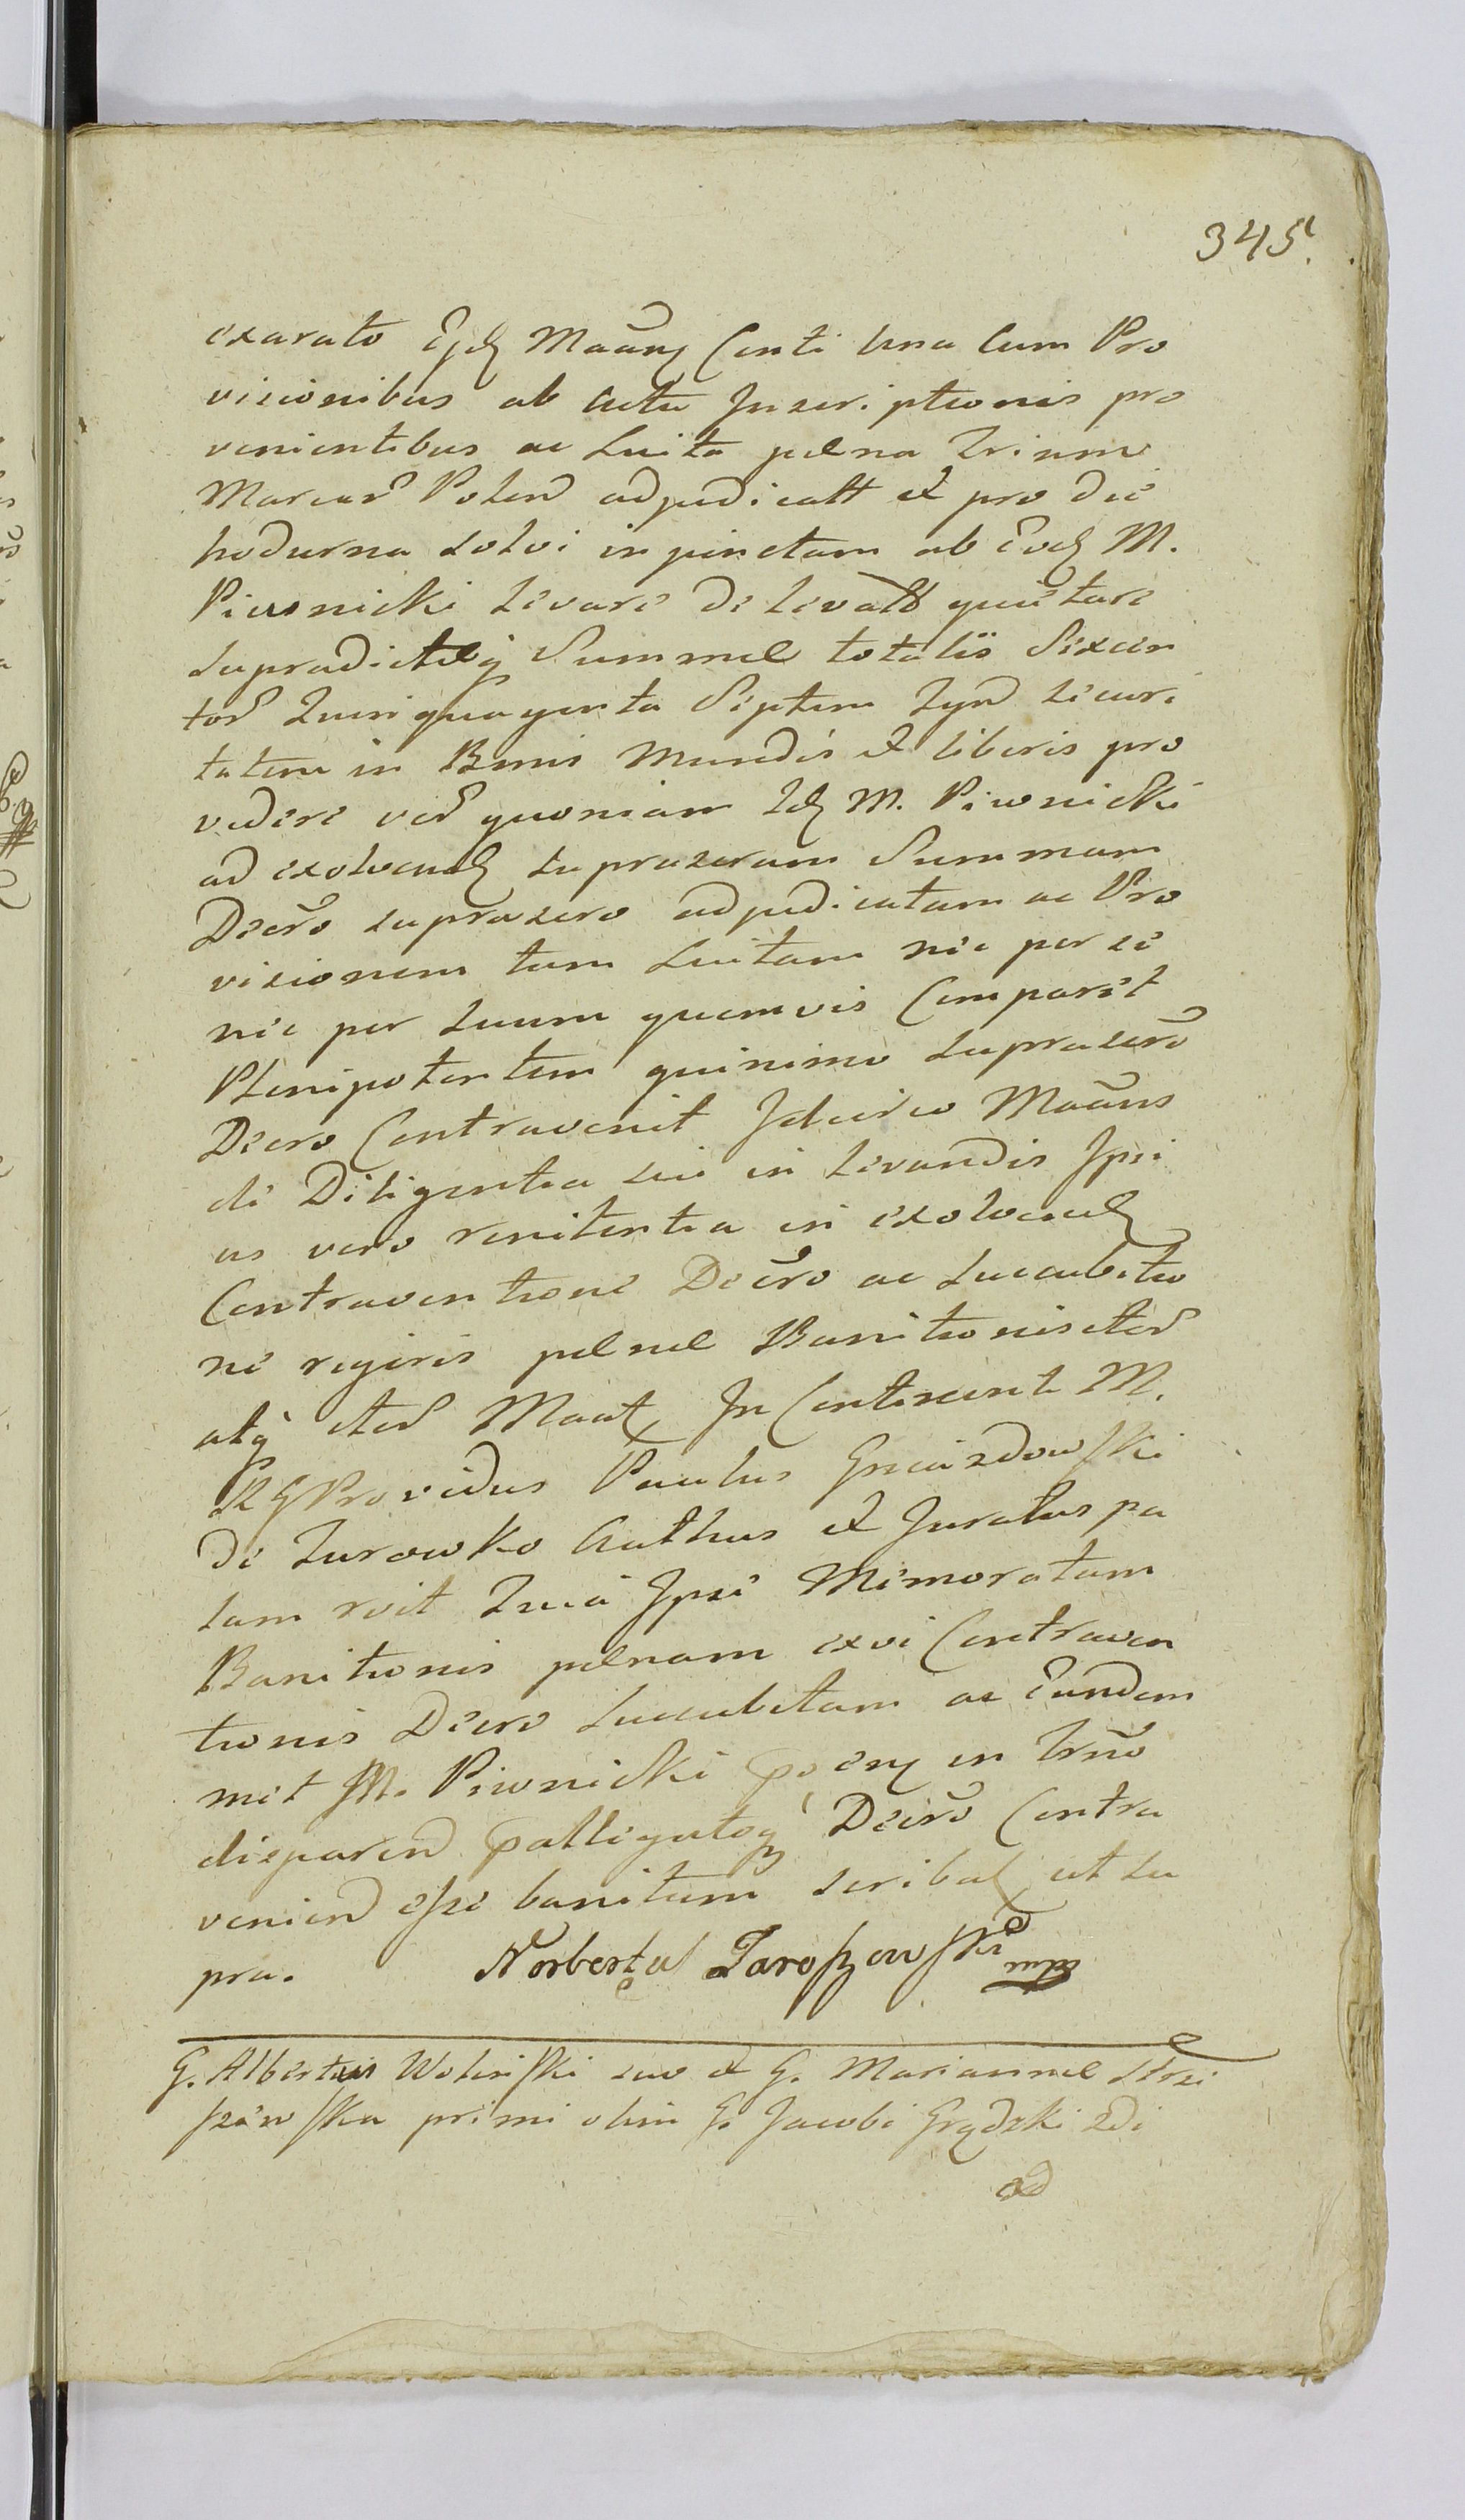 345.
exarato Ejd Maany Conti una cum Pro
visionibus ab actu Inscriptionis pro
venientibus ac Luita pœna Trium
Marcar Polon adjudicatt et pro die
hodierna solvi inpunctam ab Eod M.
Piwnicki levare de levatt quietare
supradictæq Summæ totalis Sexcen
tor Quinquaginta Septem Tyn secur
tatem in Bonis Mundis et liberis pro
videre ver quoniam Id M. Piwnicki
ad exolvend supraseram Summam
Decro suprasero adjudicatam ac Pro
visionem tum Luitam nec per se
nec per suum quemvis Comparet
Plenipotentem quinimo suprasero
Decro Contravenit Idcirco Maans
de Diligentia sui in levandis Ipsi
us vero renitentia in exolvend
Contraventione Decro ac succubitio
ne regeris pœnæ Banitionis etcr
atq etcr Maat In Continenti M.
RG Providus Paulus Gwiazdowski
de Zurowko Authus et Juratus pa
lam rvit Quia Ipse Memoratam
Banitionis pœnam exvi Contraven
tionis Decro succubitam ac Eundem
met M. Piwnicki in Trno
disparend pallegatoq Decro Contra
veniend esse banitum scribat ut su
pra. Norbertus Jaroszowski mpp
G. Albertus Wolinski suo et G. Mariannæ Strze
szewska primi olim G. Jacobi Grądzki 2di
ad